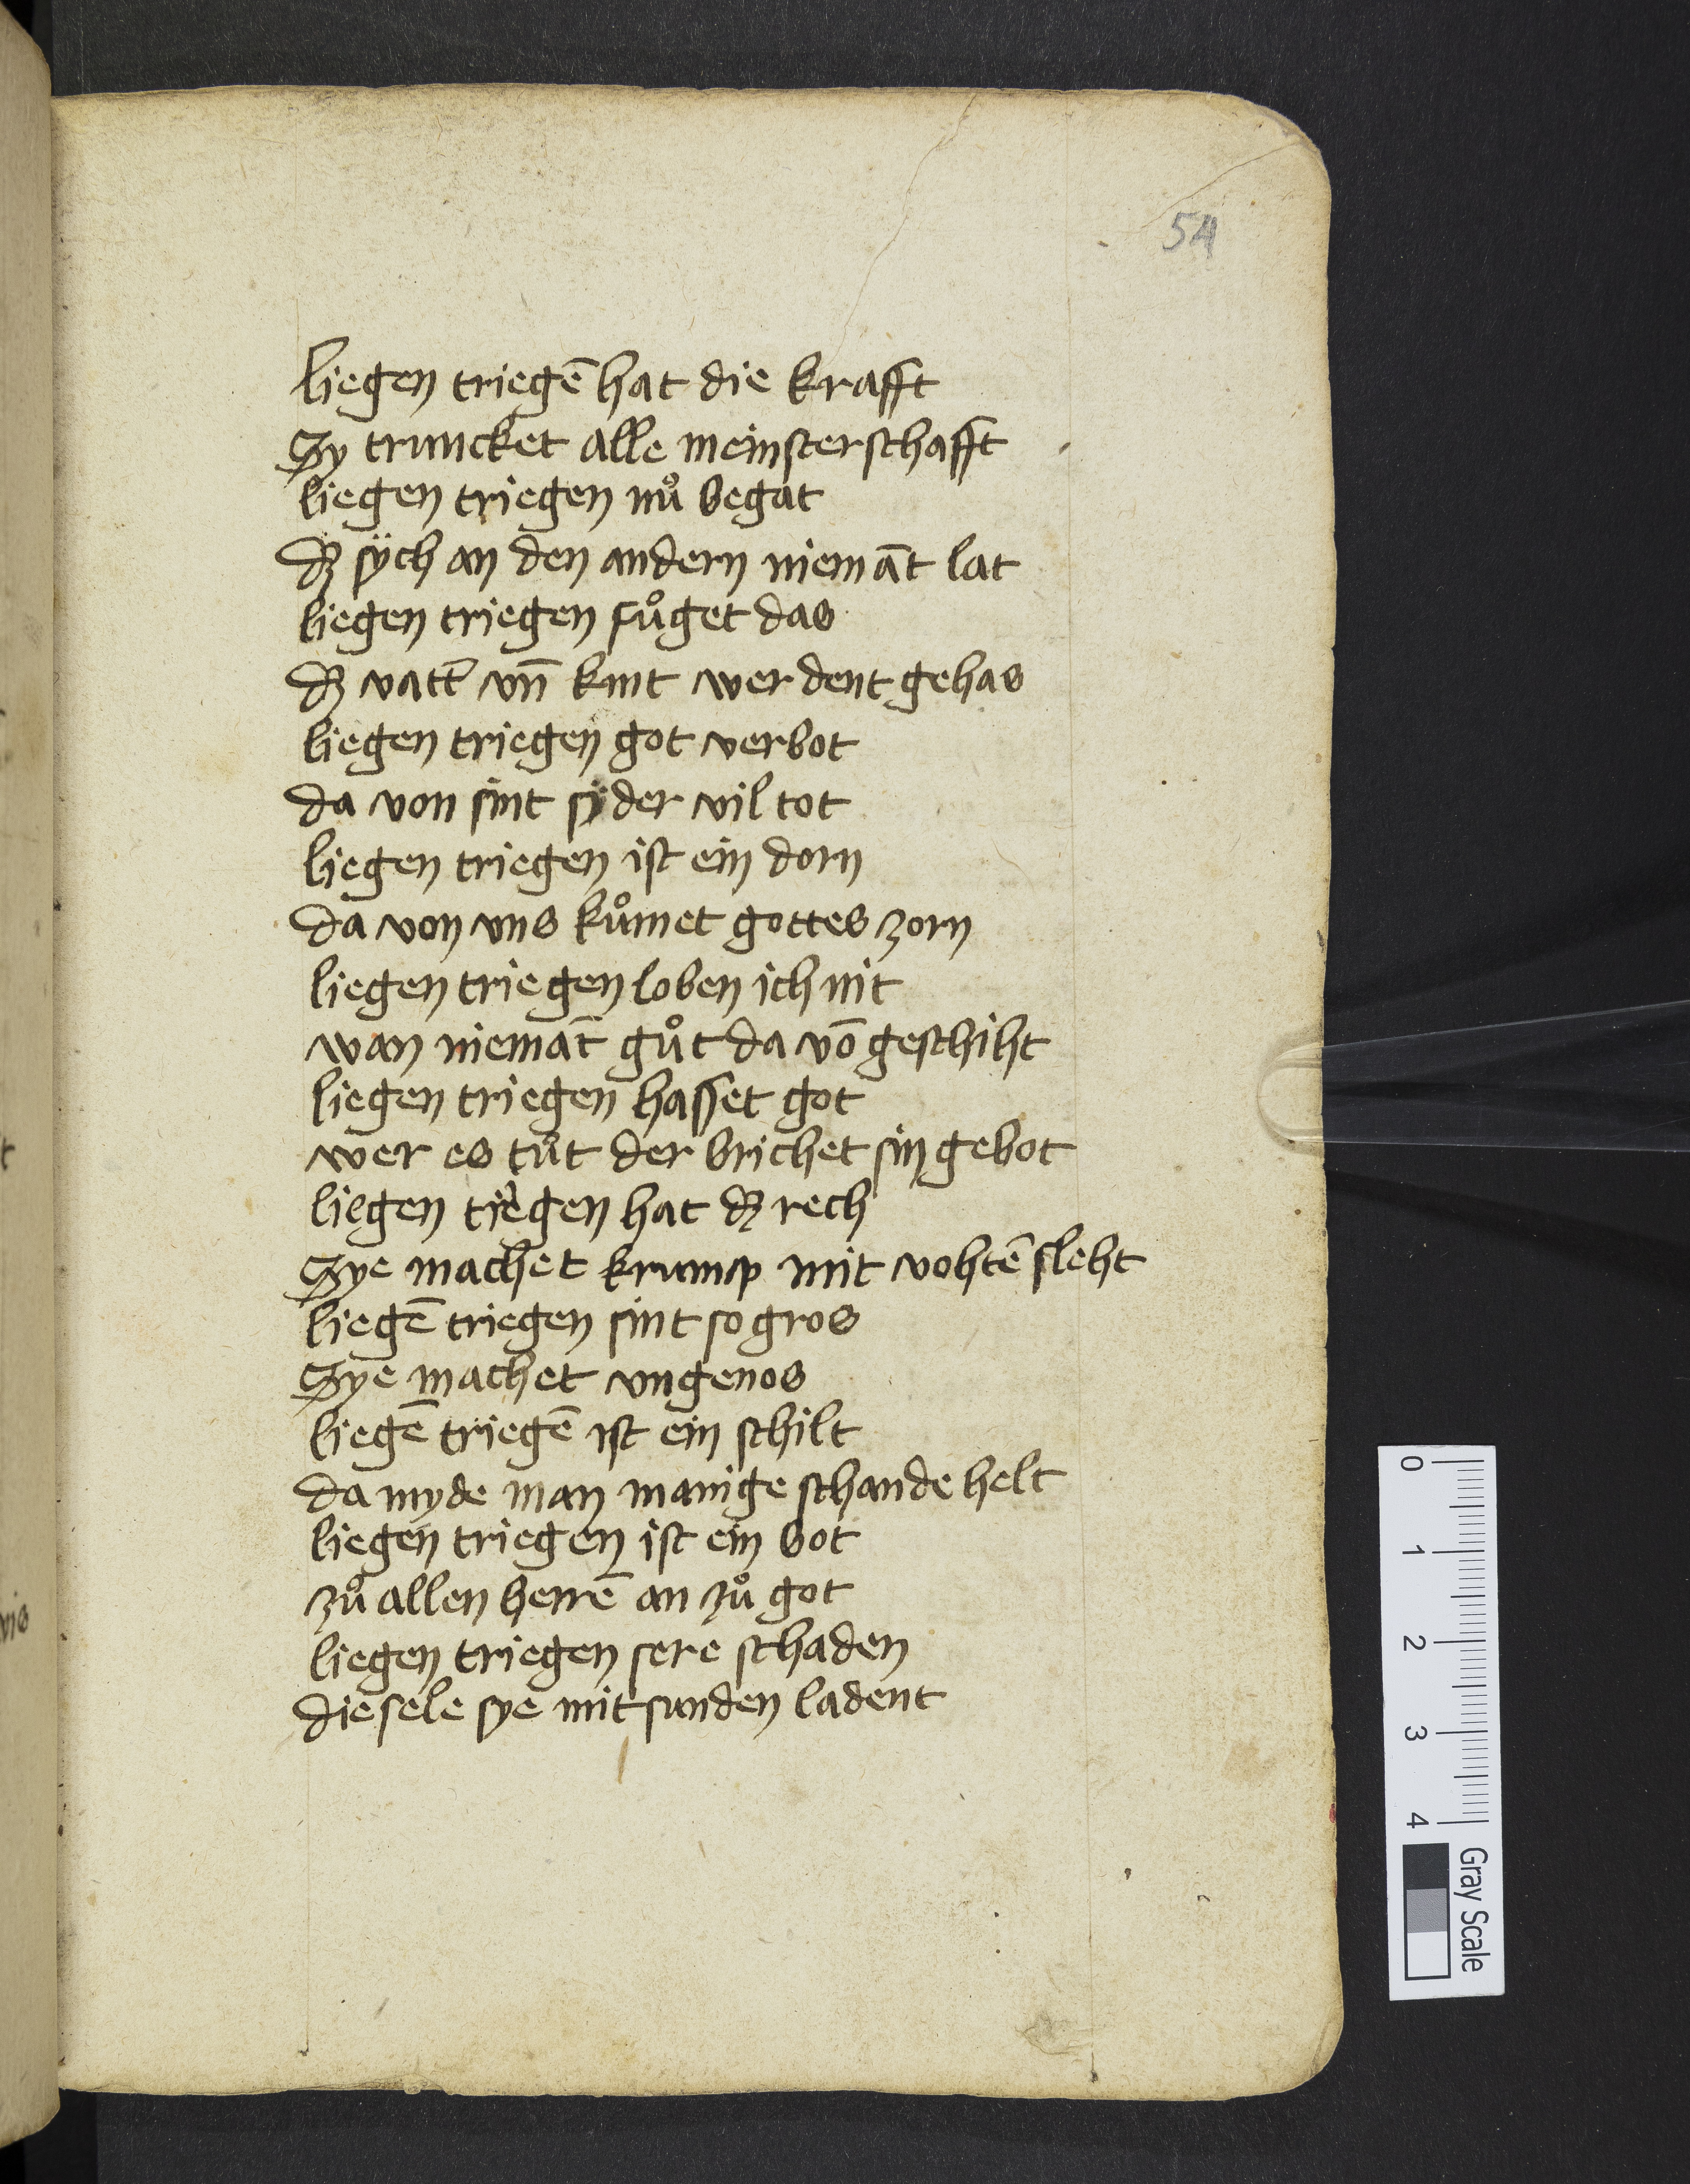 54
liegen triegē hat die krafft
Sy truncket alle meinsterschafft
liegen triegen nuͦ begat
dʒ sÿch an den andern niemāt lat
liegen triegen fuͦget das
dʒ vatt̄ vn̄ kint werdent gehas
liegen triegen got verbot
da von sint sÿder vil tot
liegen triegen ist ein dorn
da von vns kuͦmet gottes zorn
liegen triegen loben ich nit
wan niemāt guͦt da vō geschiht
liegen triegen hasset got
wer es tuͦt der brichet sin gebot
liegen triegen hat dʒ rech
Sye machet krump mit vohtē sleht
liegē triegen sint so gros
Sye machet vngenos
liegē triegē ist ein schilt
da myde man manige schande helt
liegen triegen ist ein bot
zuͦ allen herrē an zuͦ got
liegen triegen sere schaden
die sele sye mit sunden ladent
0 1 2 3 4
Gray Scale